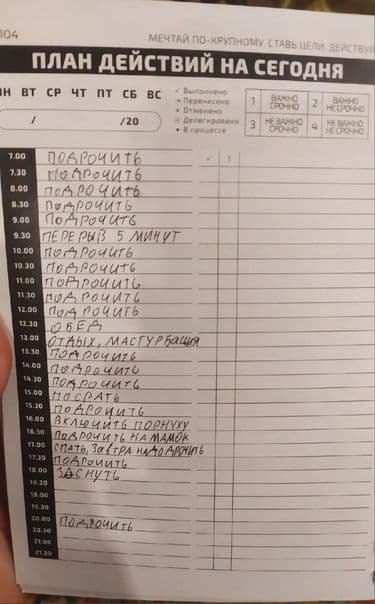 104
МЕЧТАЙ ПО-КРУПНОМУ. СТАВЬ ЦЕЛИ. ДЕЙСТВУЙ
ПЛАН ДЕЙСТВИЙ НА СЕГОДНЯ
ПН ВТ СР ЧТ ПТ СБ ВС
/ /20
✓ Выполнено
→ Перенесено
Отменено
Делегировано
• В процессе
1 ВАЖНО СРОЧНО 2 ВАЖНО НЕ СРОЧНО
3 НЕ ВАЖНО СРОЧНО 4 НЕ ВАЖНО НЕ СРОЧНО
7.00 ПОДРОЧИТЬ ✓ !
7.30 ПОДРОЧИТЬ
8.00 ПОДРОЧИТЬ
8.30 ПОДРОЧИТЬ
9.00 ПОДРОЧИТЬ
9.30 ПЕРЕРЫВ 5 МИНУТ
10.00 ПОДРОЧИТЬ
10.30 ПОДРОЧИТЬ
11.00 ПОДРОЧИТЬ
11.30 ПОДРОЧИТЬ
12.00 ПОДРОЧИТЬ
12.30 ОБЕД
13.00 ОТДЫХ, МАСТУРБация
13.30 ПОДРОЧИТЬ
14.00 ПОДРОЧИТЬ
14.30 ПОДРОЧИТЬ
15.00 ПОСРАТЬ
15.30 ПОДРОЧИТЬ
16.00 ВКЛЮЧИТЬ ПОРНУХУ
16.30 ПОДРОЧИТЬ НА МАМОК
17.00 СПАТЬ, ЗАВТРА НАДО ДРОЧИТЬ
17.30 ПОДРОЧИТЬ
18.00 ЗАСНУТЬ
18.30
19.00
19.30
20.00 ПОДРОЧИТЬ
20.30
21.00
21.30